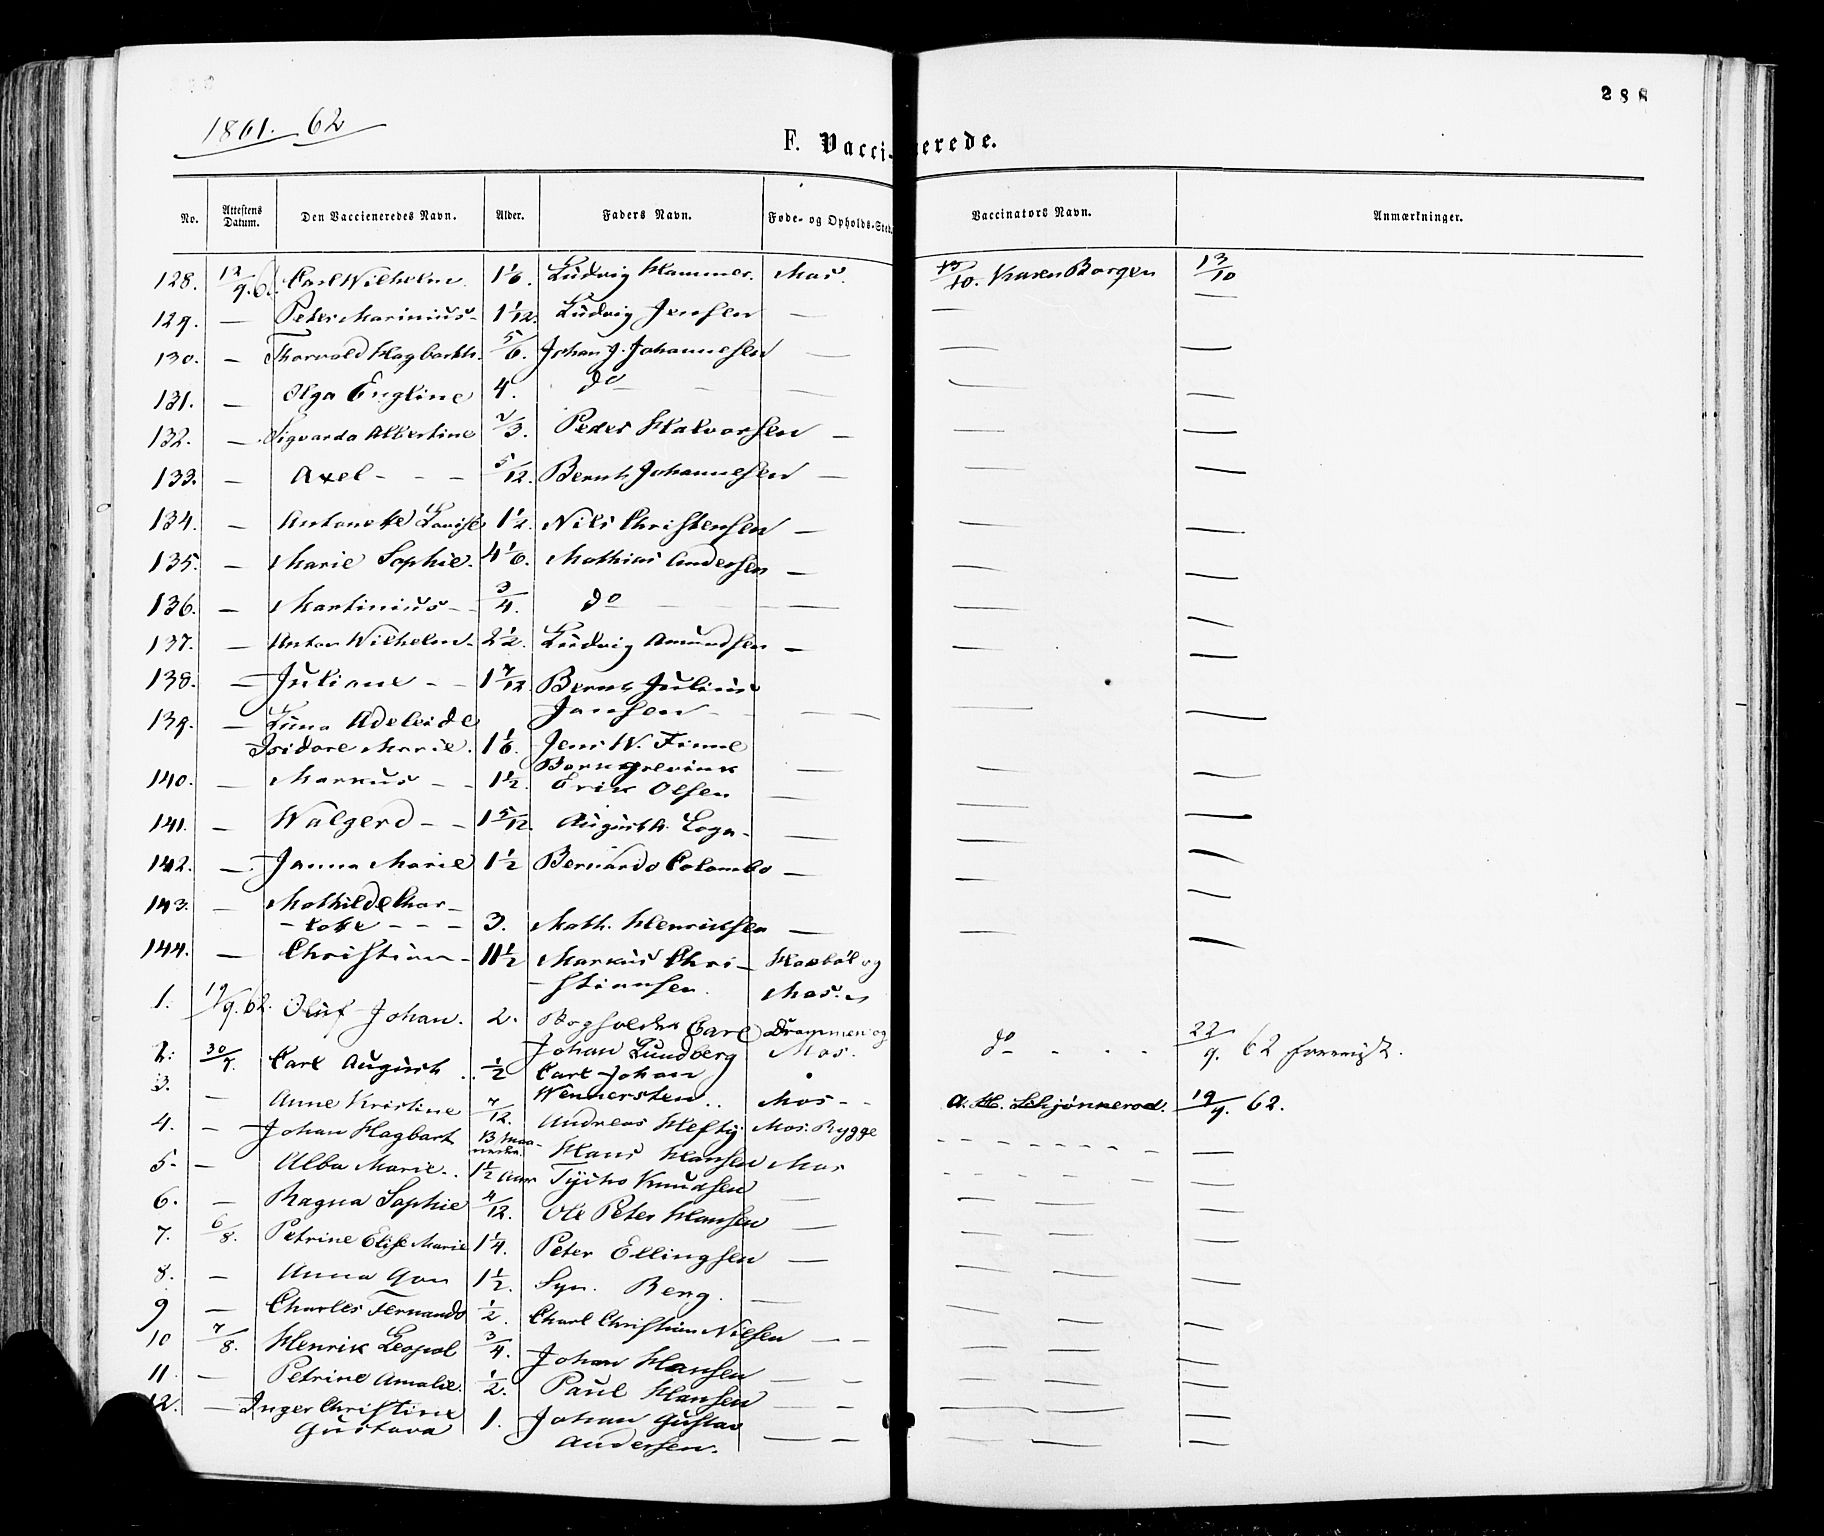 288
1861. 62
F. Vacci-nerede.
No. Attestens Datum. Den Vaccieneredes Navn. Alder. Faders Navn. Føde- og Opholds-Sted. Vaccinators Navn. Anmærkninger.
128. 12/9. 61. Carl Wilhelm. 1 1/6. Ludvig Hammer. Mos. 13/10. Karen Borgen 13/10
129. — Peder Marinius - 1 1/12. Ludvig Jensen — — —
130. — Thorvald Hagbarth. 5/6. Johan J. Johannesen — — —
131. — Olga Engline 4. do — — —
132. — Sigvarda Albertine 2/3. Peder Halvorsen — — —
133. — Axel - - - 5/12. Bernt Johannesen — — —
134. — Antonette Lovise 1 1/2. Nils Christensen — — —
135. — Marie Sophie. 4 1/6. Mathias Andersen — — —
136. — Martinius - - 3/4. do — — —
137. — Anton Wilhelm. 2 1/2. Ludvig Amundsen — — —
138. — Juliane - - 1 7/12. Bernt Julius
Jansen — — —
139. — Luna Adeleide
Isidore Marie. 1 1/6. Jens W. Finne
Borchgrevink — — —
140. — Markus - - 1 1/2. Erik Olsen — — —
141. — Walgerd - - 1 5/12. August — — —
142. — Janna Marie 1 1/2 Bernardo Colombo — — —
143. — Mathilde Char-
- lotte - - - 3. Math. Henriksen — — —
144. — Christian - 11 1/2 Markus Chri- og
- stiansen. Mos.
1. 19/9. 62. Oluf Johan. 2. Bogholder Carl Drammen og
Johan Lundberg Mos. do 22/9. 62
2. 30/7. Carl August 1/2 Carl Johan
Wennersten. Mos - - A. H. Schjønnerod. 19/7. 62.
3. — Anne Kristine 7/12. Andreas Hefty Mos. Rygge — —
4. — Johan Hagbart 13 Maa-
neder. Hans Hansen Mos — —
5. — Alba Marie. 1 1/2 Aar Tycho Knudsen — — —
6. — Ragna Sophie 4/12. Ole Peter Hansen — — —
7. 6/8. Petrine Elise Marie 1 1/4. Peter Ellingsen — — —
8. — Anna 1 1/2. Syn. Berg. — — —
9 — Charles Fernando 1/2. Charl Christian Nilsen — — —
10 7/8. Henrik Leopol 3/4. Johan Hansen — — —
11. — Petrine Amalie. 1/2. Paul Hansen — — —
12. — Inger Christine
Gustava 1. Johan Gustav
Andersen. — — —